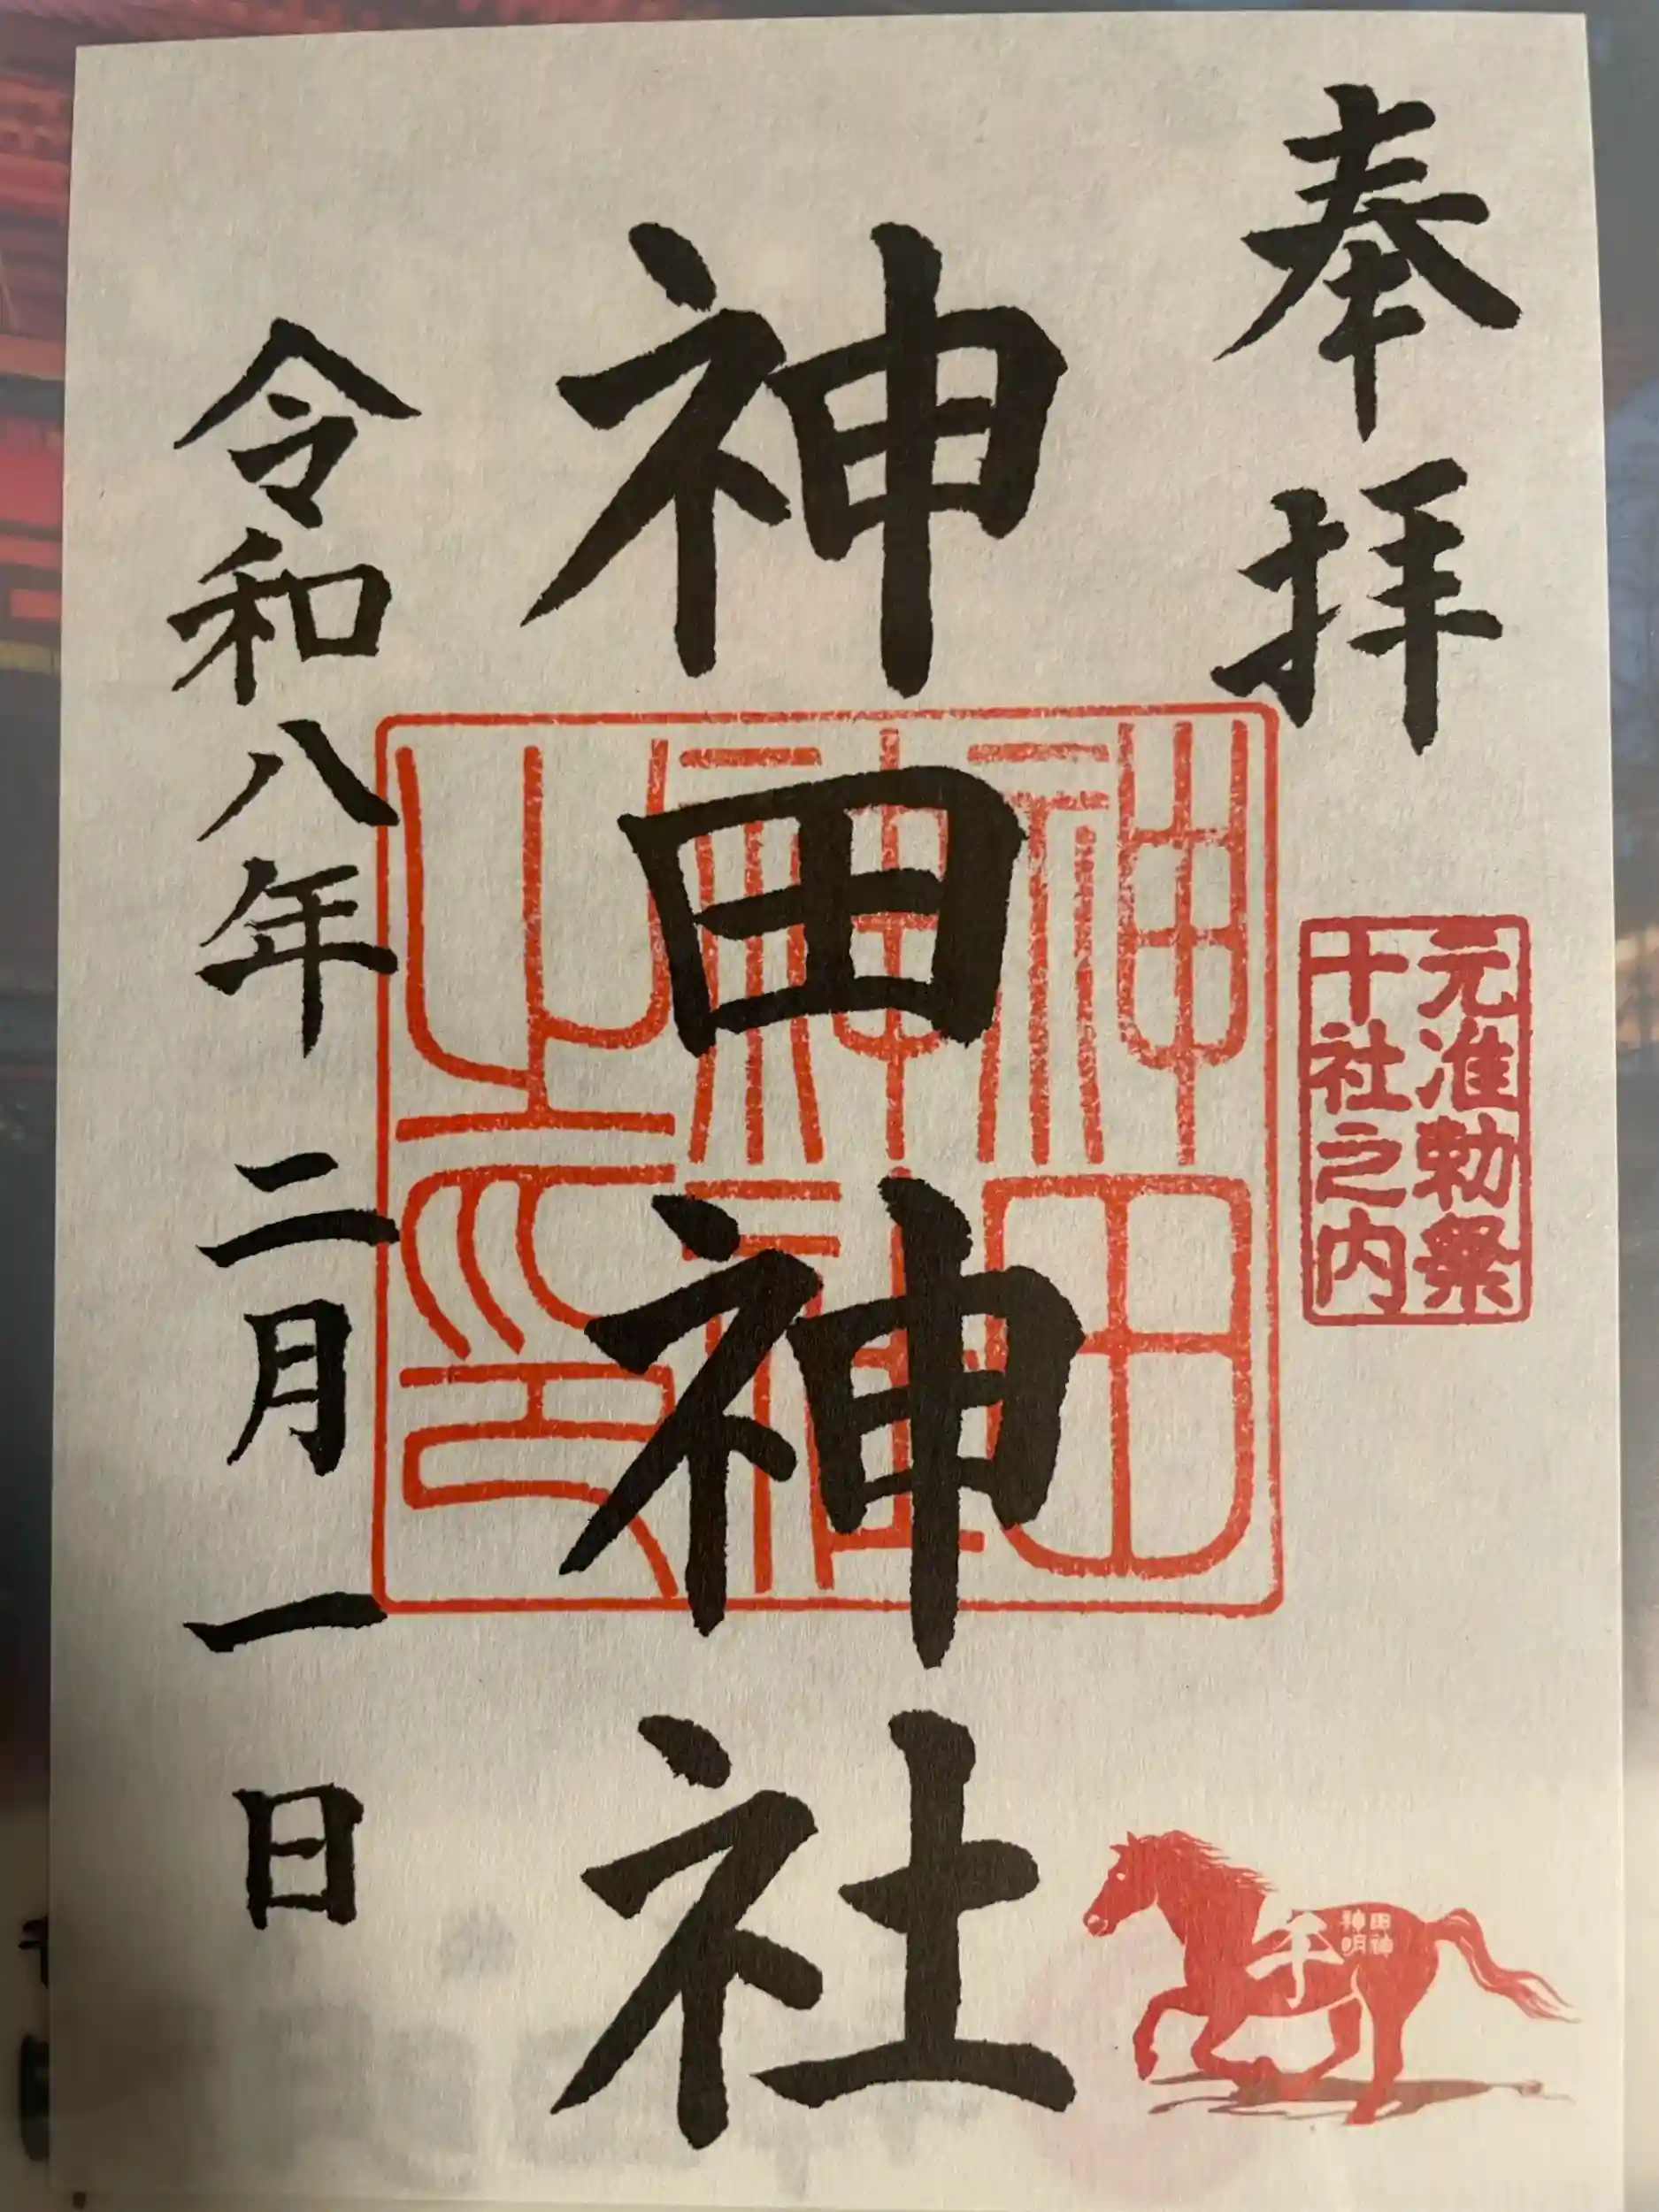 奉拝
元准勅祭
十社之内
神田神社
神田
神社
之印
令和八年二月一日
田神
神明